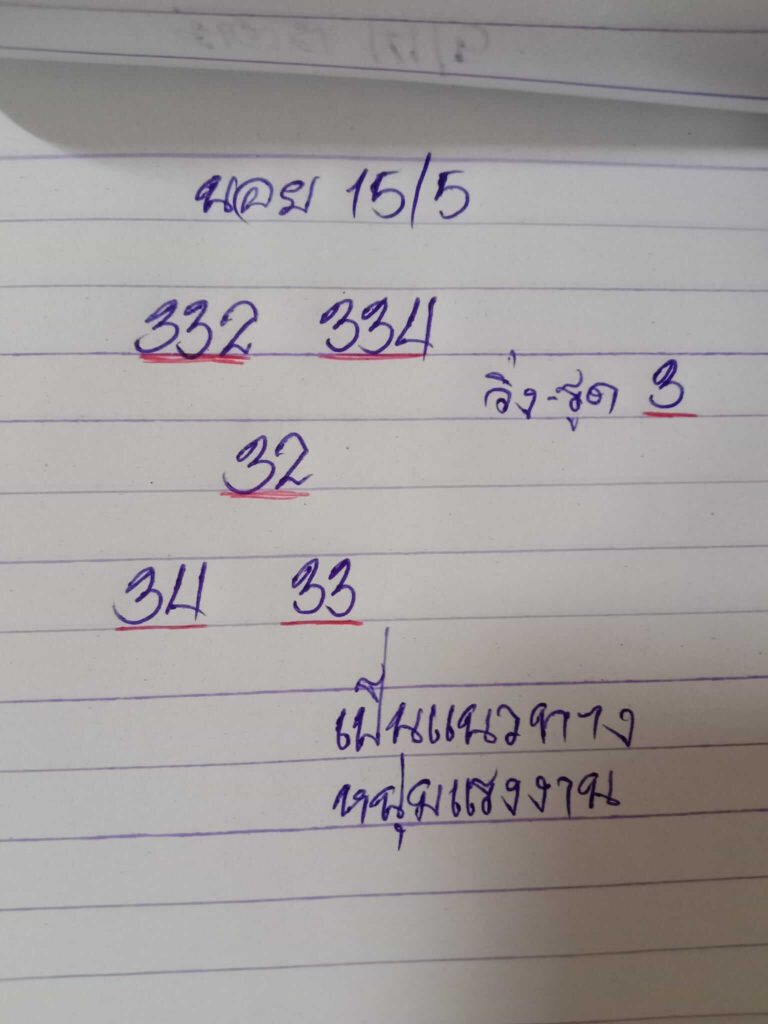 นอย 15/5
332 334
วิ่ง-รูด 3
32
34 33
เป็นแนวทาง
หนุ่มแรงงาน